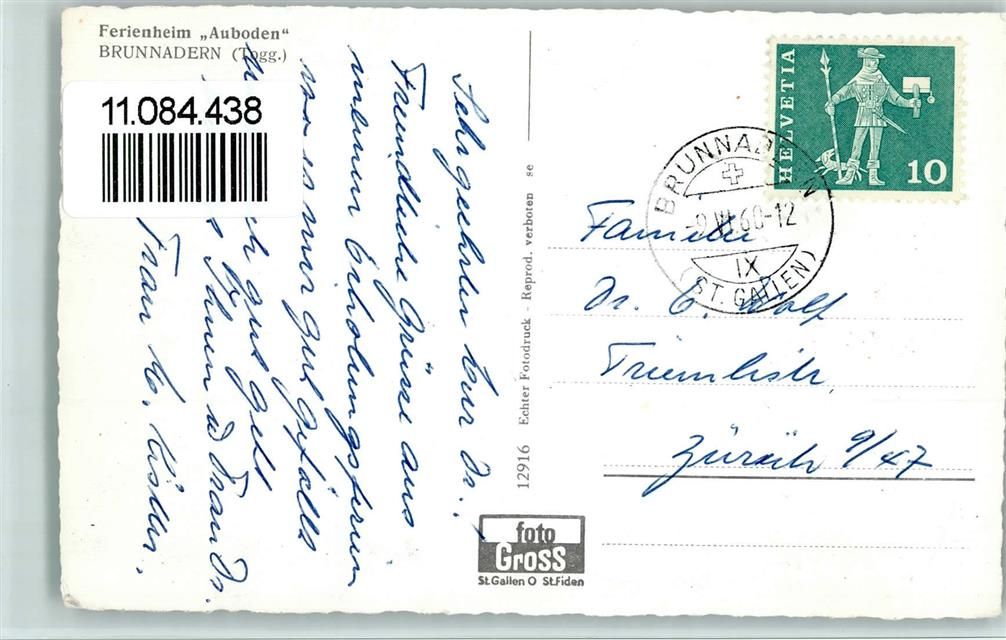 Ferienheim „Auboden“
BRUNNADERN (Togg.)
11.084.438
Sehr geehrter Herr Dr.,
Freundliche Grüsse aus
meinem Erholungsferien
wo es mir gut gefällt
gut geht
Ihnen u Frau Dr.
Frau
12916 Echter Fotodruck - Reprod. verboten se
foto
Gross
St.Gallen O St.Fiden
HELVETIA
10
BRUNNADERN
60-12
IX
(ST. GALLEN)
Familie
Dr. C. Wolf
Triemlistr,
Zürich 9/47